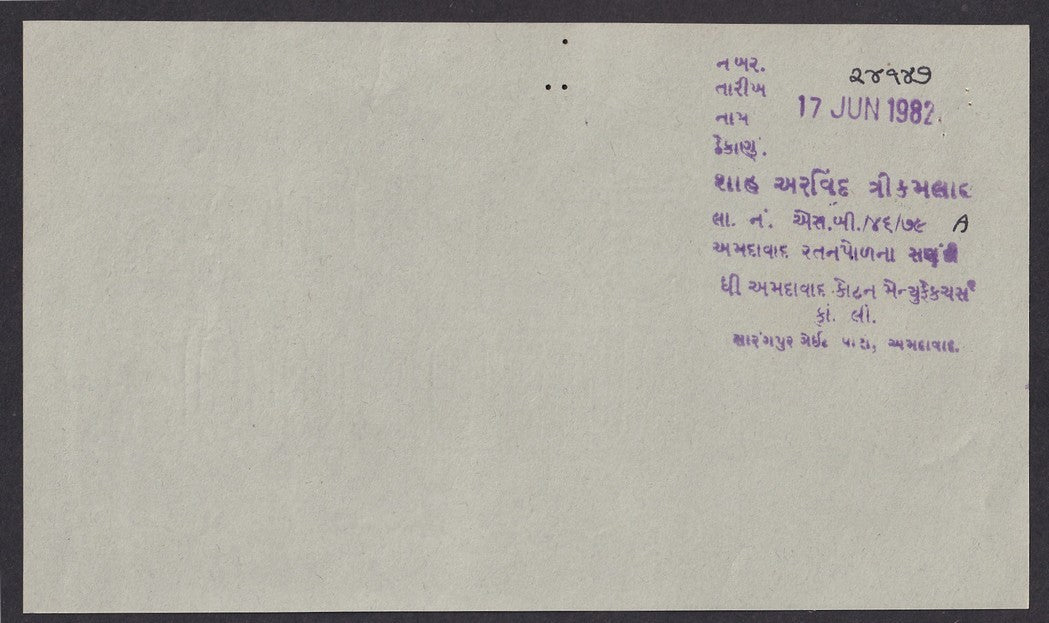 નંબર. ૨૪૧૪૭
તારીખ 17 JUN 1982.
નામ
ઠેકાણું.
શાહ અરવિંદ ત્રીકમલાલ
લા. નં. એસ.બી./૪૬/૭૯ A
અમદાવાદ રતનપોળના
ધી અમદાવાદ કોટન મેન્યુફેકચર્સ
કાં. લી.
સારંગપુર ગેઈટ પાસે, અમદાવાદ.